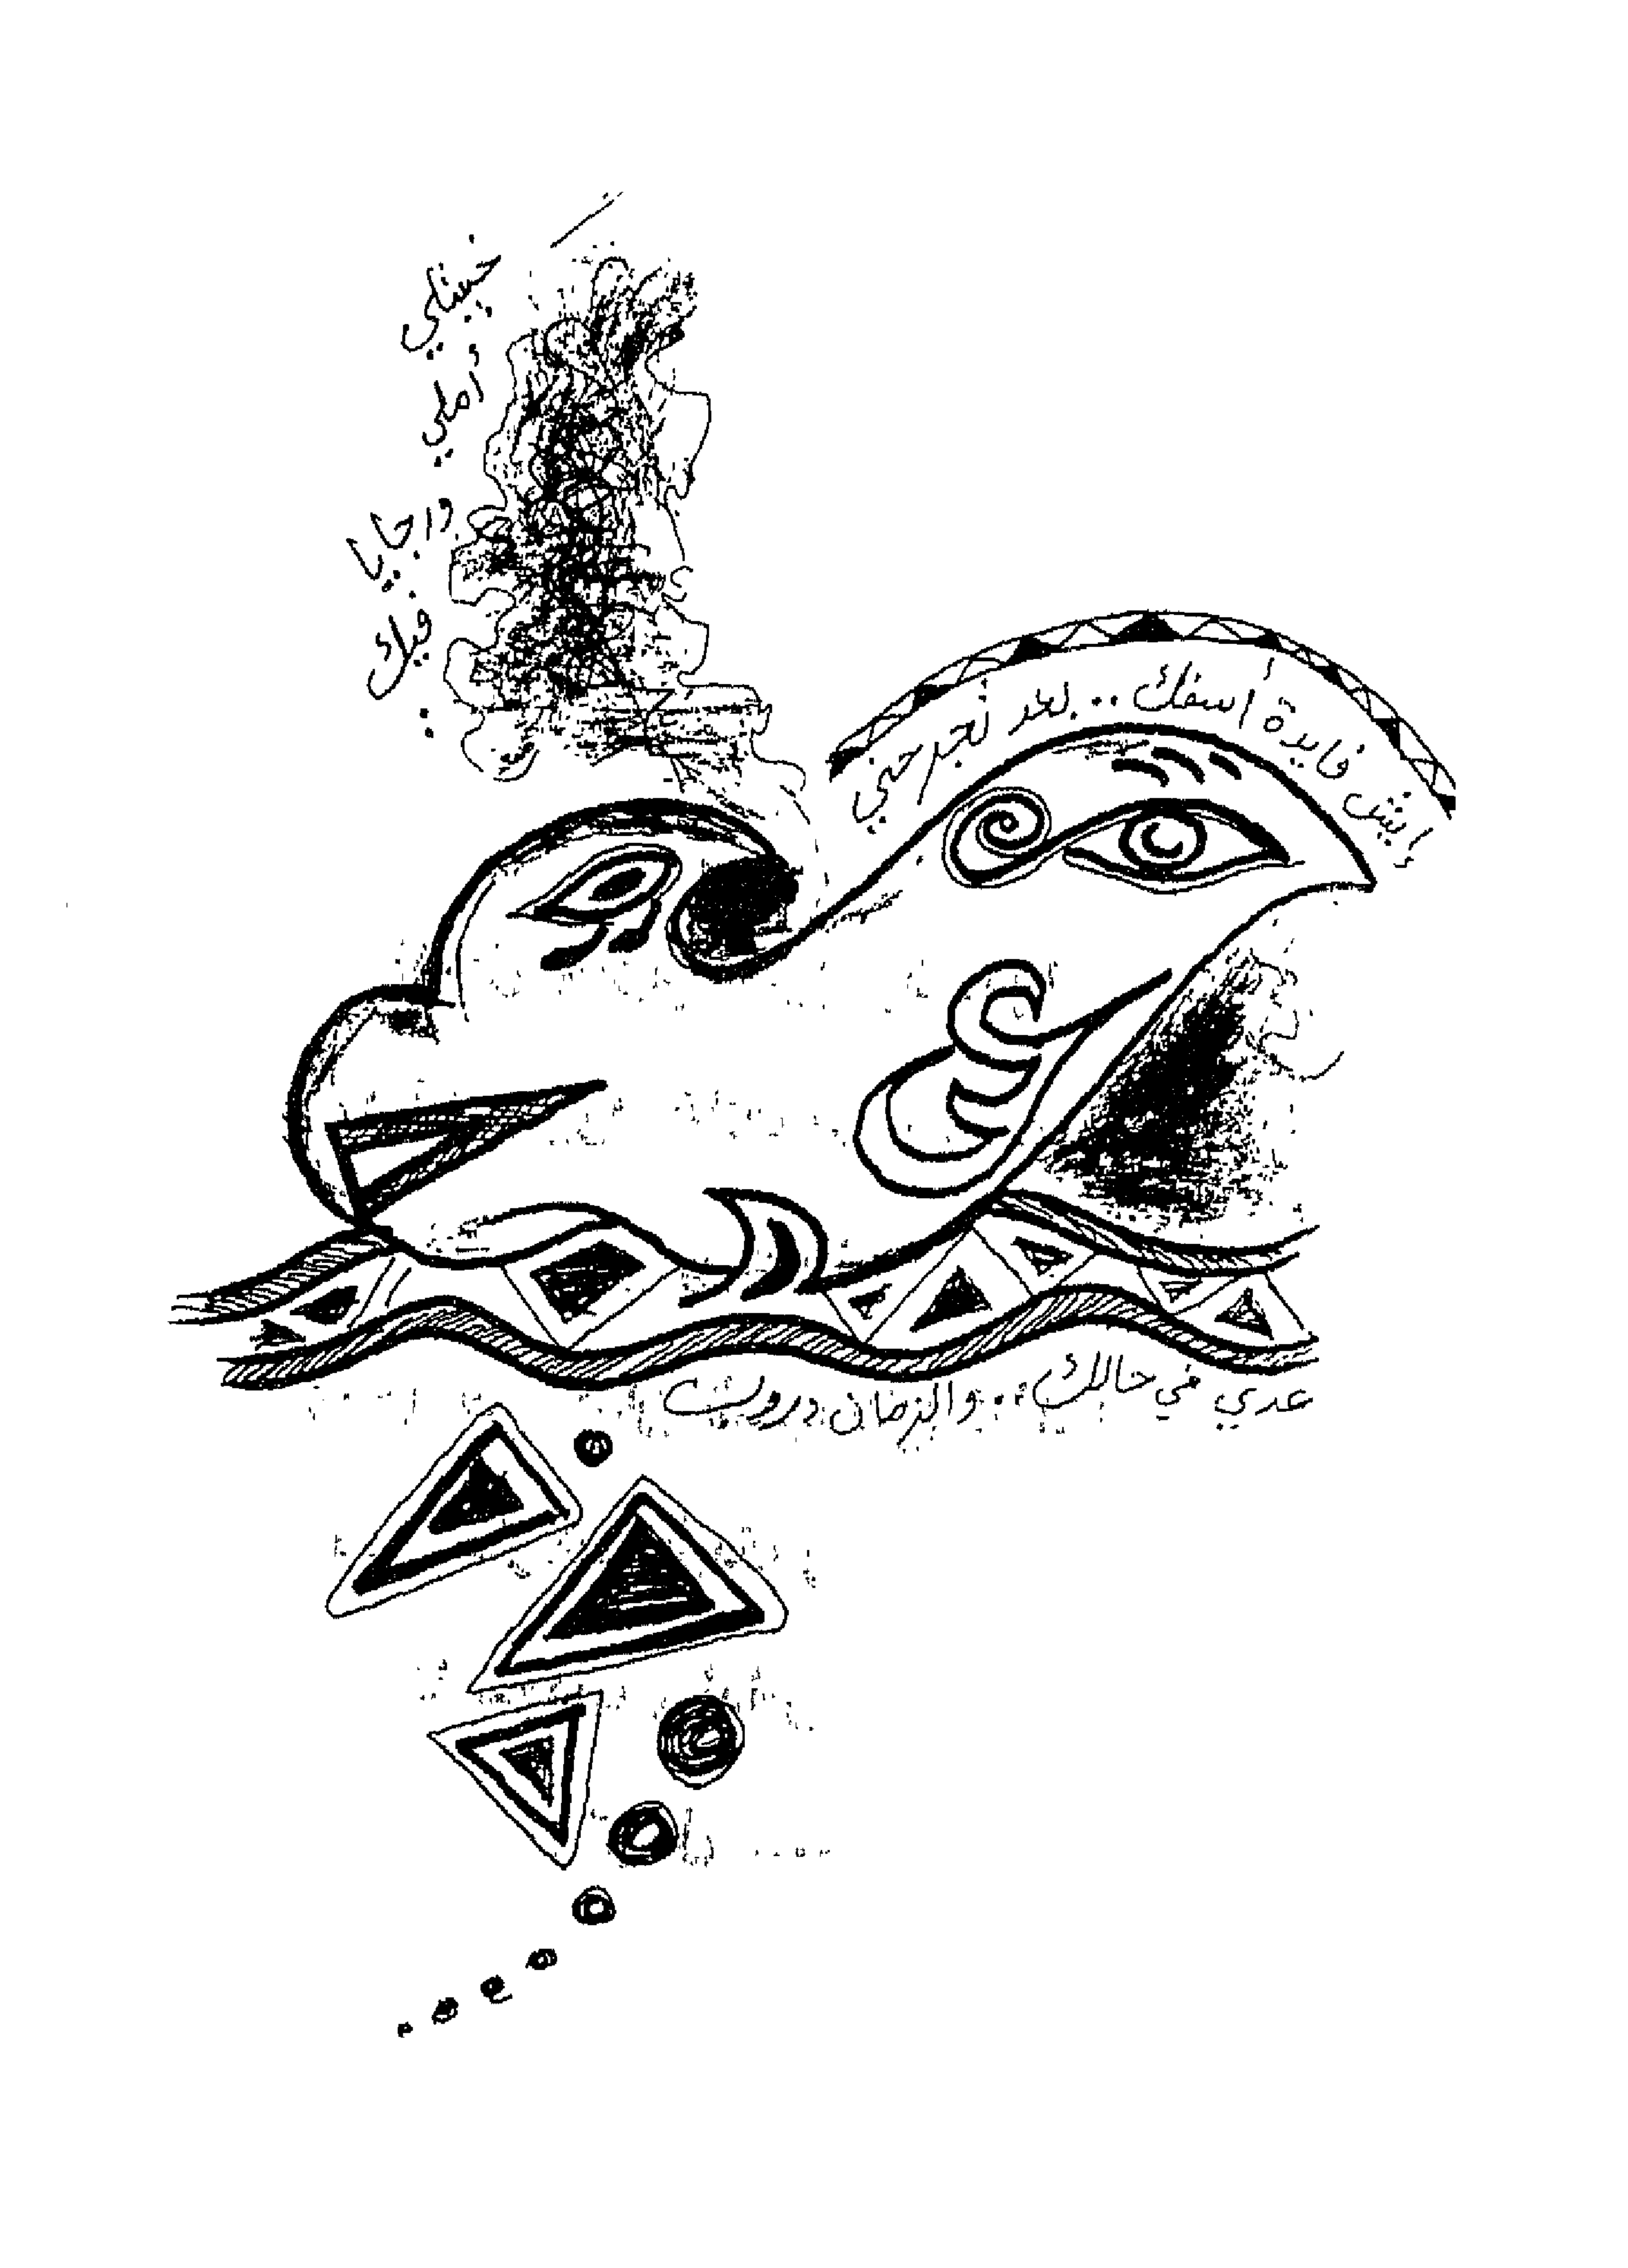 خيبتلي
أملي
ورجايا
فيك
ايش فايدة أسفك .. بعد تجرحني
عدي في حالك .. والزمان دروب